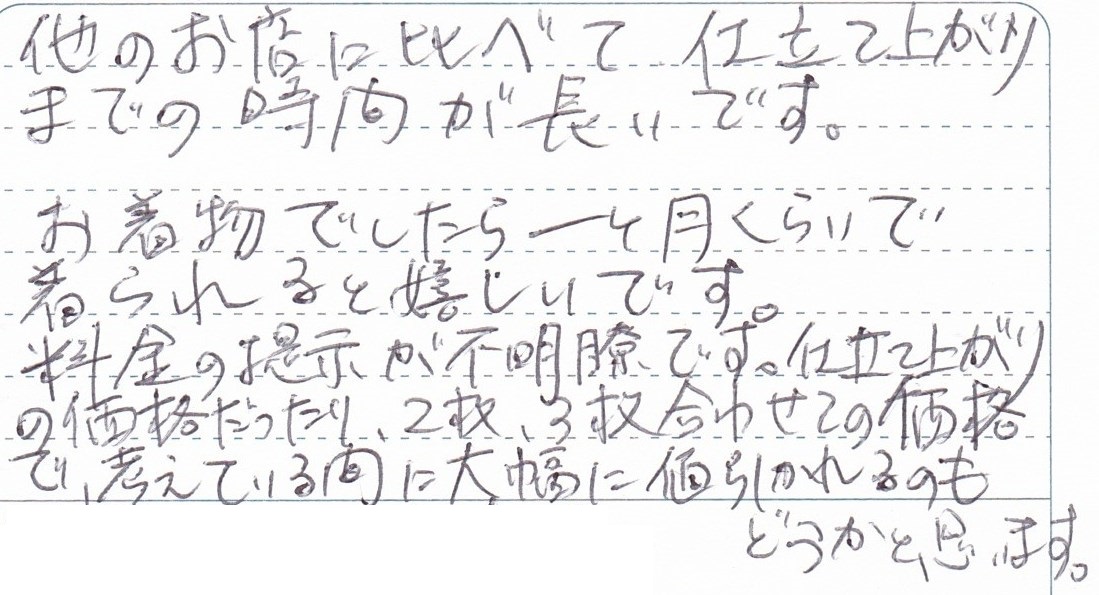 他のお店に比べて仕立て上がり
までの時間が長いです。
お着物でしたら一ヶ月くらいで
着られると嬉しいです。
料金の提示が不明瞭です。仕立て上がり
の価格だったり、2枚、3枚合わせての価格
で、考えている間に大幅に値引かれるのも
どうかと、思います。